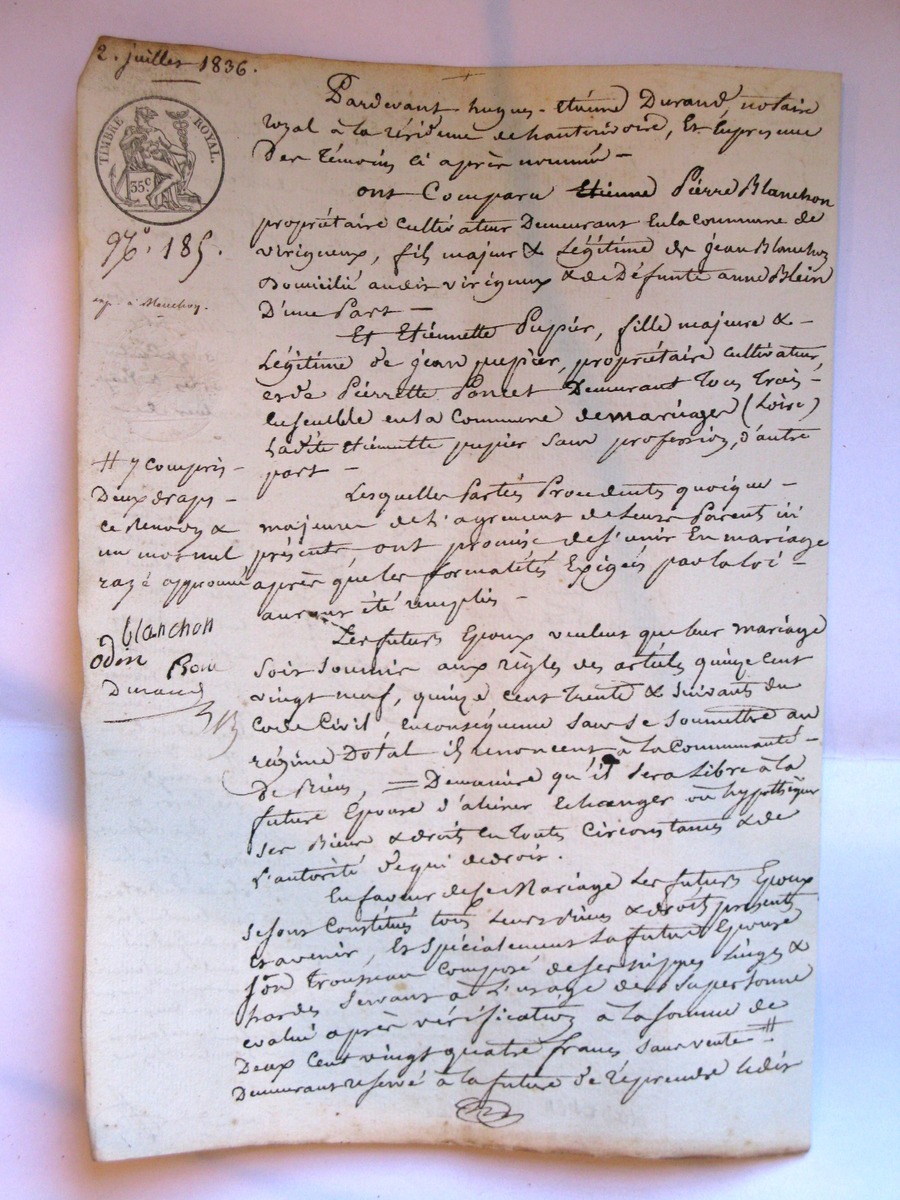 2. juillet 1836.
TIMBRE ROYAL.
35c
No. 185.
exp. à
Pardevant hugues-etiénne Durand, notaire
royal à la résidence de hauterivoire, Et Enpresence
Des témoins ci après nommés –
ont Comparu Etienne Pierre Blanchon
propriétaire cultivateur Demeurant Enla commune de
virigneux, fils majeur & Légitime de jean Blanchon
Domicilié audit virigneux & de Défunte anne Blein
D'une Part –
Et Etiénnette Pupier, fille majeure & –
Légitime de jean pupier, propriétaire cultivateur,
et de Pierrette Poncet Demeurant tous trois –
Ensemble en la Commune de maringes (Loire)
Ladite etiénnette pupier sans profession, d'autre
part –
Lesquelles Parties Procedents quoique –
majeures de l'agrement de leurs Parents ici
présents ont promis de s'unir En mariage
après que les formalités Exigées par la loi –
auront été remplies –
Les futurs Epoux veulent que leur mariage
soit soumis aux règles des articles quinze cent
vingt neuf, quinze cent trente & suivants du
Code Civil, En conséquence sans se soumettre au
régime Dotal ils renoncent à la Communauté –
De Biens, = De manière qu'il sera Libre à la
future Epouse d'aliéner Echanger où hypothéquer
ses Biens & droits En toutes Circonstances & de
L'autorité de qui de droit.
En faveur de ce Mariage Les futurs Epoux
se sont Constitués tous Leurs biens & droits présents
et avenir, Et Spécialement La future Epouse
son trousseau Composé de ses nippes Linges &
hardes servant à L'usage de sa personne
evalué après vérification à la somme de
Deux Cent vingt quatre francs, sans vente #
Demeurant reservé à la future de reprendre ledit
# y compris –
Deux draps –
ce Renvoi &
un mot nul
razé approuvé
blanchon
odin
Durand